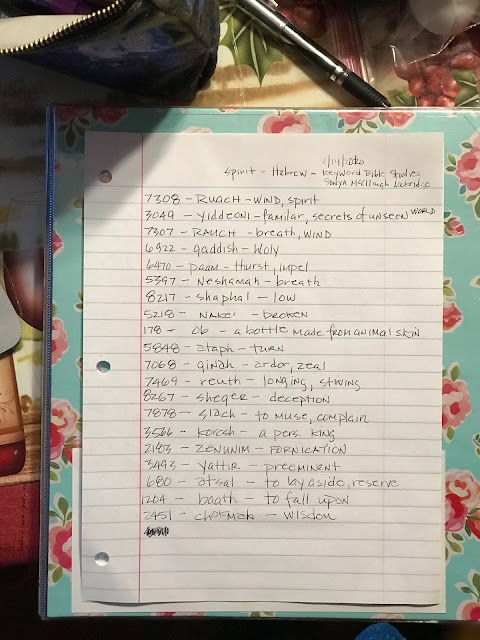 2/14/2020
Spirit - Hebrew - Keyword Bible Studies
Sonya McCllough Lockridge
7308 - RUACH - WIND, SPIRIT
3049 - Yiddeoni - familar, secrets of unseen WORLD
7307 - RAUCH - breath, WIND
6922 - qaddish - Holy
6470 - paam - thurst, impel
5397 - Neshamah - breath
8217 - shaphal - low
5218 - NAKE' - broken
178 - Ob - a bottle made from animal skin
5848 - ataph - TURN
7068 - qinah - ardor, zeal
7469 - reuth - longing,
8267 - sheqer - deception
7878 - siach - to MUSE, complain
3566 - koresh - a pers. king
2183 - ZENUNIM - FORNICATION
3493 - Yattir - preeminent
680 - atsal - to lay aside, reserve
1204 - baath - to fall upon
2451 - chokmah - WISDOM